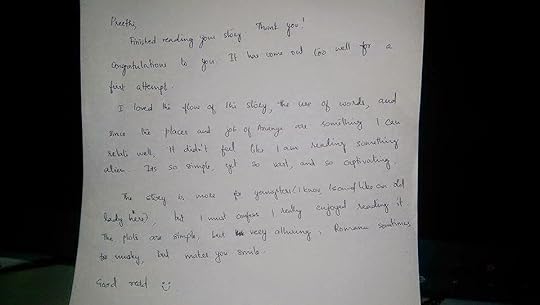 Preethi,
Finished reading your story. Thank you!
Congratulations to you. It has come out too well for a
first attempt.
I loved the flow of the story, the use of words, and
since the places and job of are something I can
relate well. It didn't feel like I am reading something
alien. Its so simple, yet so vast, and so captivating.
The story is more for youngsters (I know I sound like an old
lady here), but I must confess I really enjoyed reading it.
The plots are simple, but very alluring. Romance sometimes
too mushy, but makes you smile.
Good read :)